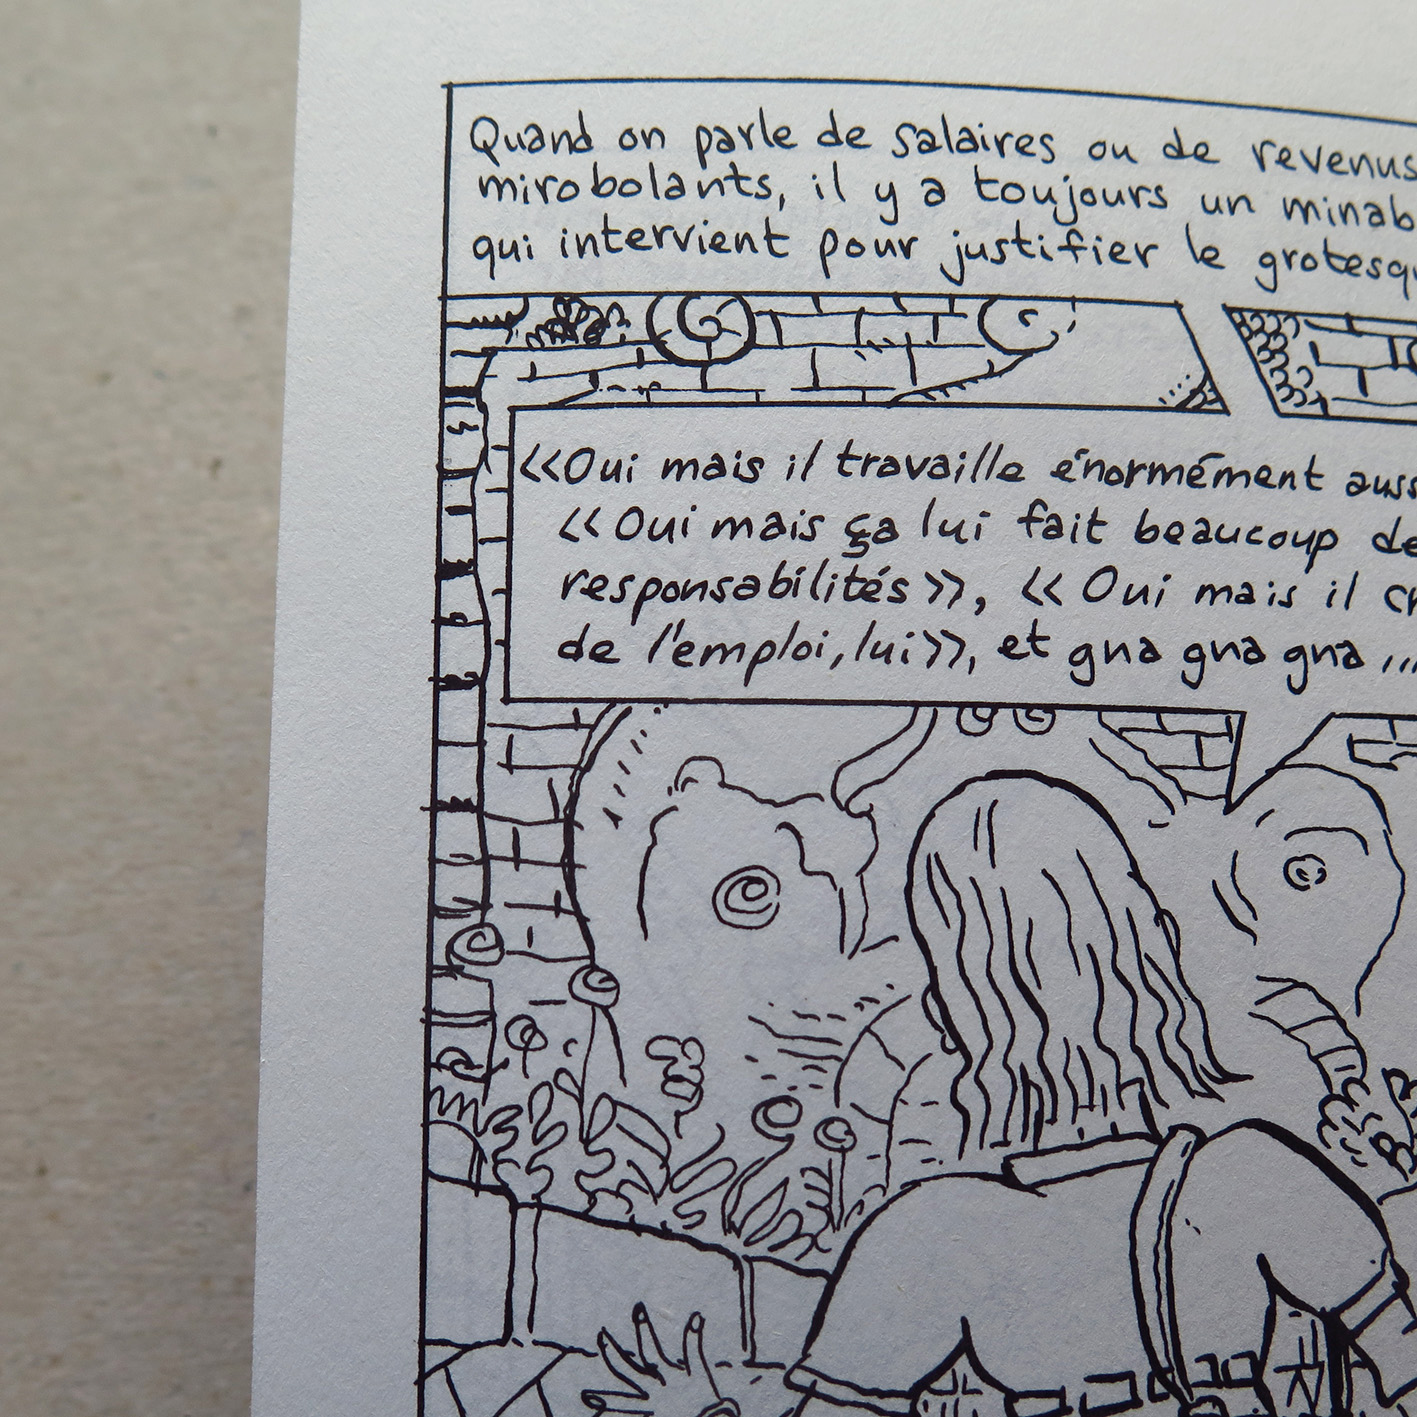 Quand on parle de salaires ou de revenus
mirobolants, il y a toujours un minab
qui intervient pour justifier le grotesq
«Oui mais il travaille énormément auss
«Oui mais ça lui fait beaucoup de
responsabilités», «Oui mais il cr
de l'emploi, lui», et gna gna gna...